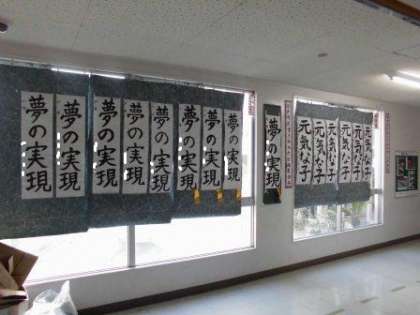 夢の実現
夢の実現
夢の実現
夢の実現
夢の実現
夢の実現
夢の実現
夢の実現
夢の実現
元気な子
元気な子
元気な子
元気な子
元気な子
元気な子